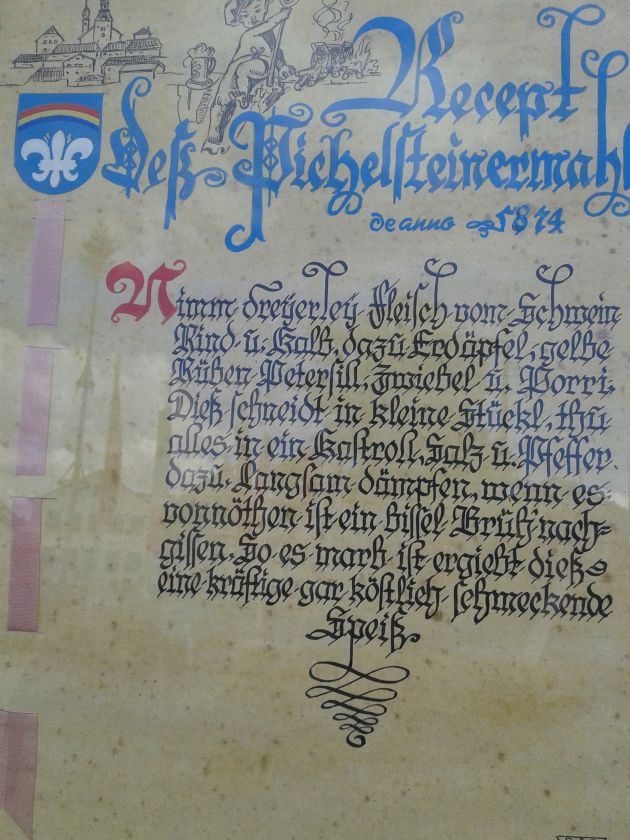 Recept
deß Pichelsteinermahl
de anno 1874
Nimm dreyerley Fleisch vom Schwein
Rind u. Kalb, dazu Erdäpfel, gelbe
Rüben Petersill, Zwiebel u. Porri.
Dieß schneidt in kleine Stückl, thu
alles in ein Kastroll, Salz u. Pfeffer
dazu. Langsam dämpfen, wenn es
vonnöthen ist ein bissel Brüh' nach=
gissen. So es marb ist ergiebt dieß
eine kräftige gar köstlich schmeckende
Speiß.